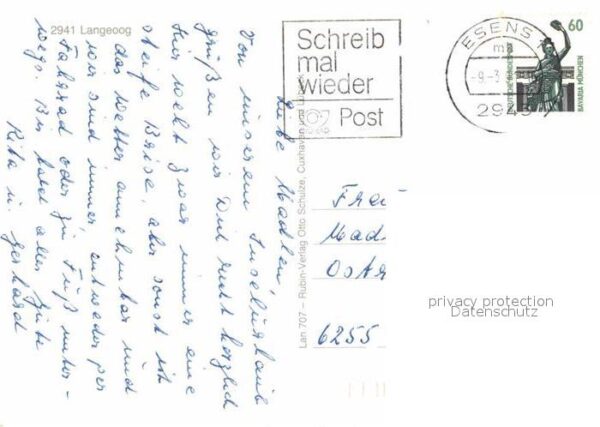 2941 Langeoog
Liebe Madlen!
Von unserem Inselurlaub
grüßen wir Dich recht herzlich
Hier weht zwar immer eine
steife Brise, aber sonst ist
das Wetter annehmbar und
wir sind immer, entweder per
Fahrrad oder zu Fuß unter-
wegs. Bis bald alles Gute
Rita u. Gerhard
Lan 707 – Rubin-Verlag Otto Schulze, Cuxhaven
Schreib
mal
wieder
Post
ESENS
m
-9.-3
294
60
DEUTSCHE BUNDESPOST
BAVARIA MÜNCHEN
Frau
Mad
Ostr
6255
privacy protection
Datenschutz